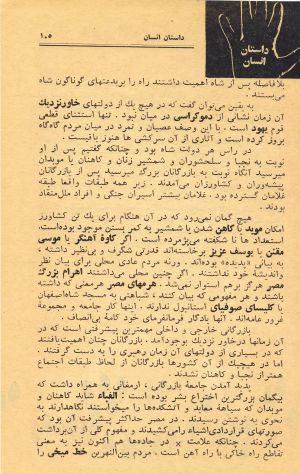 داستان انسان
۱۰۵
داستان
انسان
بلافاصله پس از شاه اهمیت داشتند راه را بر بدعتهای گوناگون شاه
می‌بستند.
به یقین می‌توان گفت که در هیچ یك از دولتهای خاورنزدیك
آن زمان نشانی از دموکراسی در میان نبود. تنها استثنای قطعی
قوم یهود است. با این وصف عصیان و تمرد در میان مردم گاه‌گاه
بروز کرده است و آثاری از آن سرکشی ها هنوز باقیست.
در رأس هر دولت شاه بود و چنانکه گفتیم پس از او
نوبت به نجبا و سلحشوران و شمشیر زنان و کاهنان یا موبدان
میرسید آنگاه نوبت به بازرگانان بزرگ میرسید پس از بازرگانان
پیشه‌وران و کشاورزان می‌آمدند. زیر همه طبقات واقعا طبقه
غلامان گسترده بود. غلامان بیشتر اسیران جنگی و افراد ملل‌منقاد
بودند.
هیچ گمان نمی‌رود که در آن هنگام برای یك تن کشاورز
امکان موبد یا کاهن شدن یا شمشیر به کمر بستن موجود بوده‌است.
استعداد ها نا شکفته می‌پژمرده است. اگر کاوۀ آهنگر یا موسی
مقنن یا یوسف عزیز برخاسته‌اند قدرتی شگرف و بی‌نظیر داشته،
به بیانی (پدیده) بوده‌اند. ورنه مردم عادی محلی برای بیان نظر
واندیشۀ خود نداشتند. اگر چنین محلی می‌داشتند اهرام بزرگ
مصر هرگز برهم استوار نمی‌شد. هرمهای مصر هرمعنی که داشته
باشند و هر مفهومی که بیان کنند، شباهتی به مسجد شاه‌اصفهان
یا کلیسای صوفیای استانبول ندارند. اینها کار جامعه و مجموعۀ
غرور عامه‌اند. آنها یادگار بی‌انصاف.
بازرگانی خارجی و داخلی مهمترین پیشرفتی است که در
آن زمانها درخاور نزدیك بوجودآمد. بازرگانان چنان اهمیت‌یافتند
که در بسیاری از دولتهای آن زمان رهبری را به دست گرفتند.
اما در هیچیك از آن کشورها بازرگانان از لحاظ طبقات اجتماع
همتراز نجبا و کاهنان نشدند.
پدید آمدن جامعۀ بازرگانی، ارمغانی به همراه داشت که
بیگمان بزرگترین اختراع بشر بوده است: الفباء شاید کاهنان و
موبدان که سیاهۀ معابد و آتشکده‌ها را میخواستند نگاهدارند به
نحوی به نوشتن رسیدند. در مصر حداکثر پیشرفت آن بود که
صورتهای قراردادی‌اشیاء رامی‌کشیدند و مفهوم کلی از آن برداشت
می‌کردند. چنانکه علامت × در جاده‌ها هم اکنون نیز به معنی
تقاطع راه خاکی با راه آهن است. مردم بین‌النهرین خط میخی را